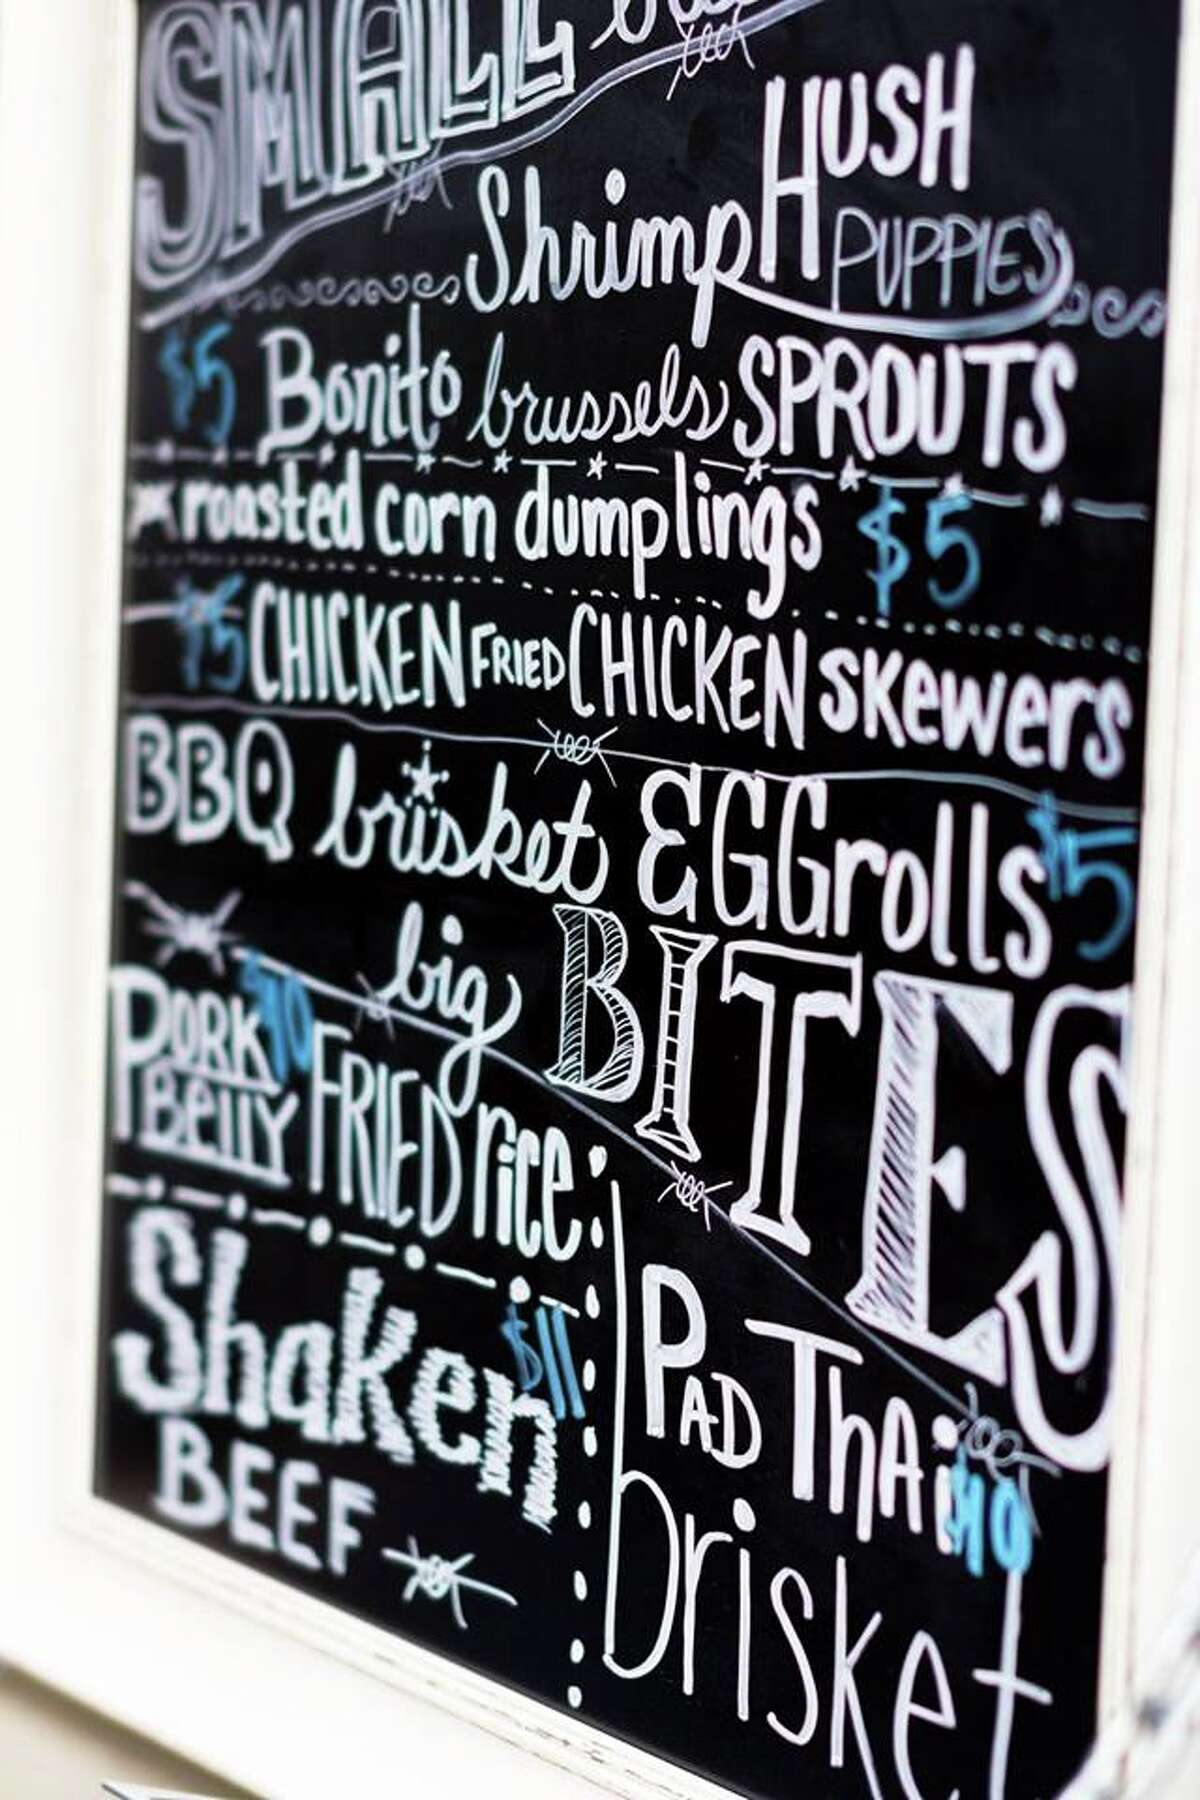 SMALL
Shrimp HUSH PUPPIES
$5 Bonito brussels SPROUTS
roasted corn dumplings $5
$5 CHICKEN FRIED CHICKEN SKEWERS
BBQ brisket EGGrolls $5
big BITES
PORK BELLY $10 FRIED rice
Shaken $11
BEEF
PAD THAi $10
brisket